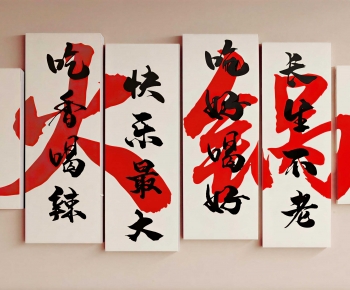 火锅
吃香喝辣
快乐最大
吃好喝好
长生不老